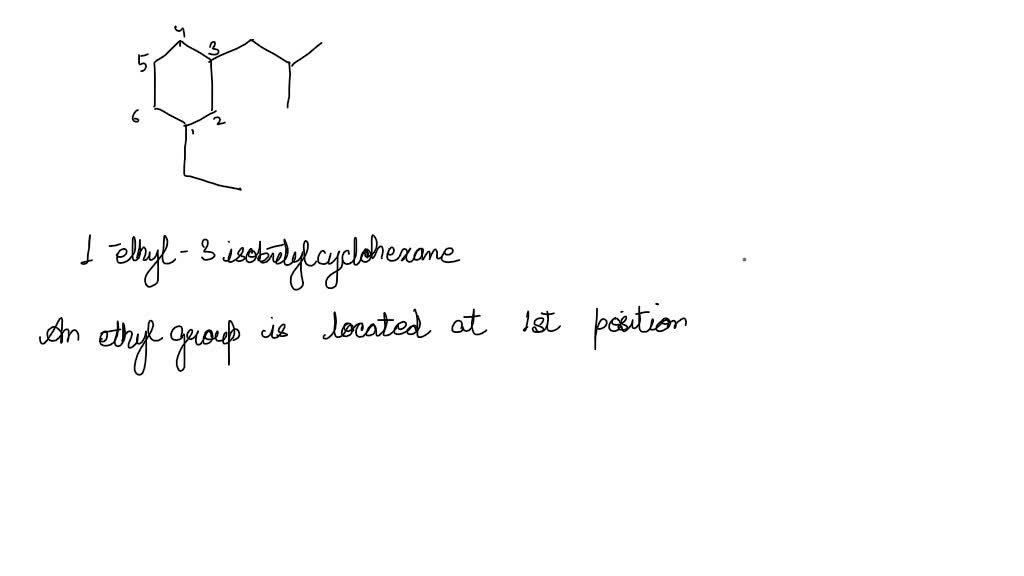 4
3
5
6
2
1
1-ethyl-3 isobutylcyclohexane
An ethyl group is located at 1st position